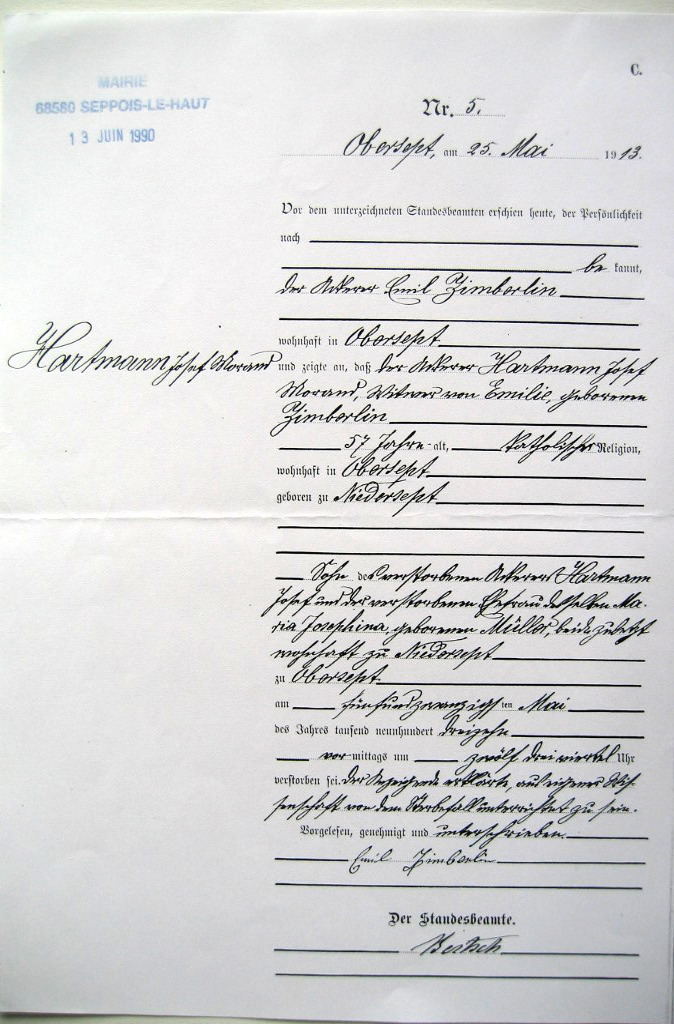 C.
MAIRIE
68580 SEPPOIS-LE-HAUT
13 JUIN 1990
Nr. 5.
Obersept, am 25. Mai 1913.
Vor dem unterzeichneten Standesbeamten erschien heute, der Persönlichkeit
nach
bekannt,
der Ackerer Emil Zimberlin
wohnhaft in Obersept
Hartmann Josef Morand
und zeigte an, daß der Ackerer Hartmann Josef
Morand, Witwer von Emilie, geborenen
Zimberlin
57 Jahre alt, katholischer Religion,
wohnhaft in Obersept
geboren zu Niedersept
Sohn des verstorbenen Ackerers Hartmann
Josef und der verstorbenen Ehefrau desselben Ma-
ria Josephina, geborenen Müller, beide zuletzt
wohnhaft zu Niedersept
zu Obersept
am fünfundzwanzigsten Mai
des Jahres tausend neunhundert dreizehn
vormittags um zwölf dreiviertel Uhr
verstorben sei. Der Anzeigende erklärte, aus eigener Wis-
senschaft von dem Sterbefall unterrichtet zu sein.
Vorgelesen, genehmigt und unterschrieben.
Emil Zimberlin
Der Standesbeamte.